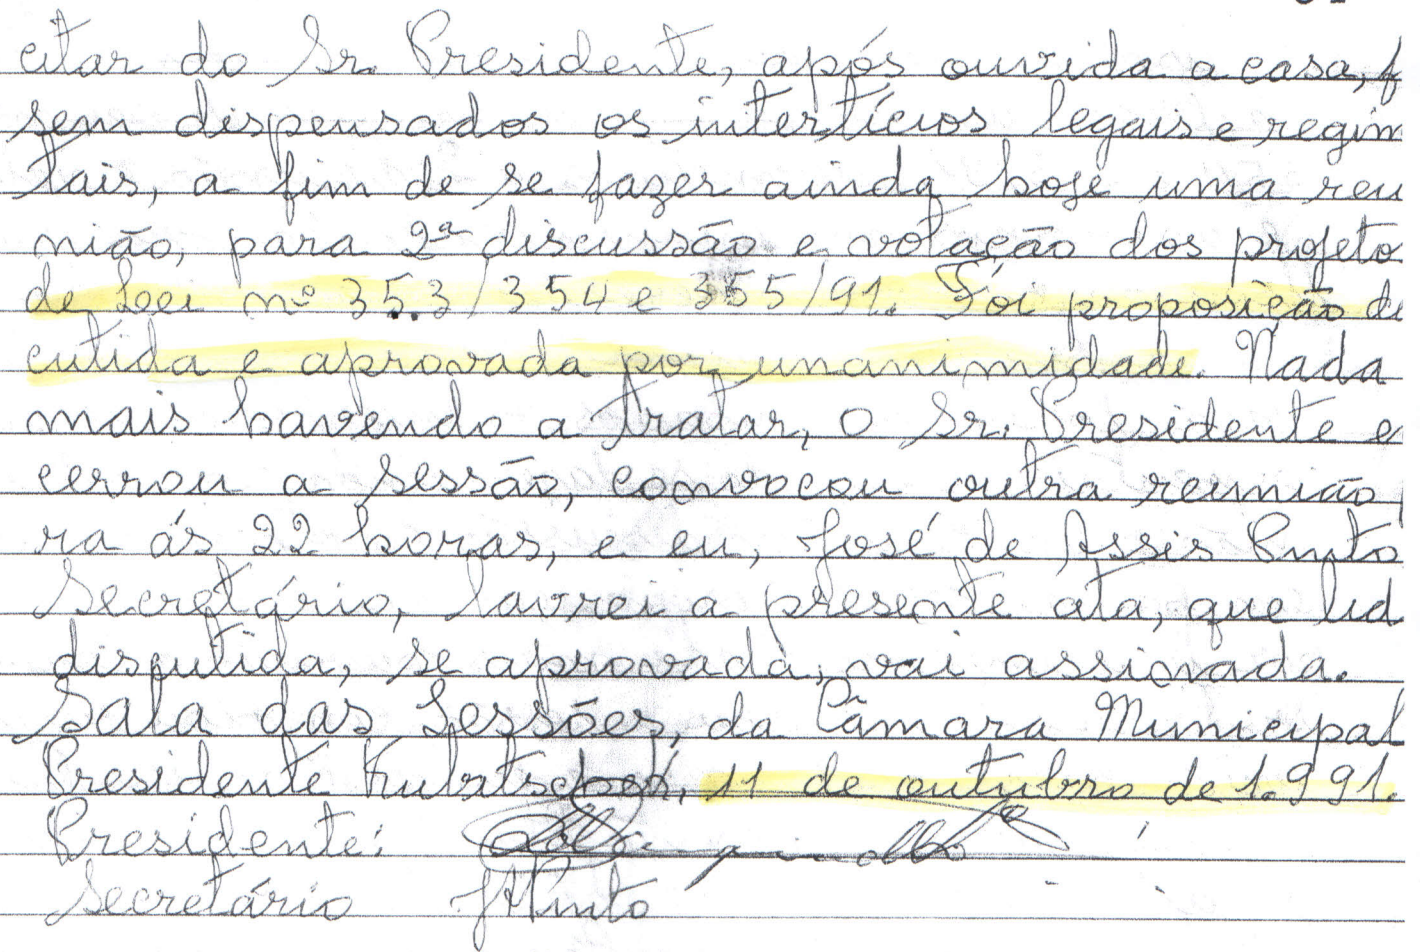 citar do Sr. Presidente, após ouvida a casa, f
sem dispensados os intertícios legais e regim
tais, a fim de se fazer ainda hoje uma reu
nião, para 2ª discussão e votação dos projeto
de Leei nº 353/354 e 355/91. Foi proposição di
cutida e aprovada por unanimidade. Nada
mais havendo a tratar, o Sr. Presidente e
cerrou a Sessão, convocou outra reunião
ra ás 22 horas, e eu, José de Assis Pinto
Secretário, lavrei a presente ata, que lid
disputida, se aprovada, vai assinada.
Sala das Sessões, da Câmara Municipal
Presidente Kubitschek, 11 de outubro de 1.991.
Presidente:
Secretário JAPinto